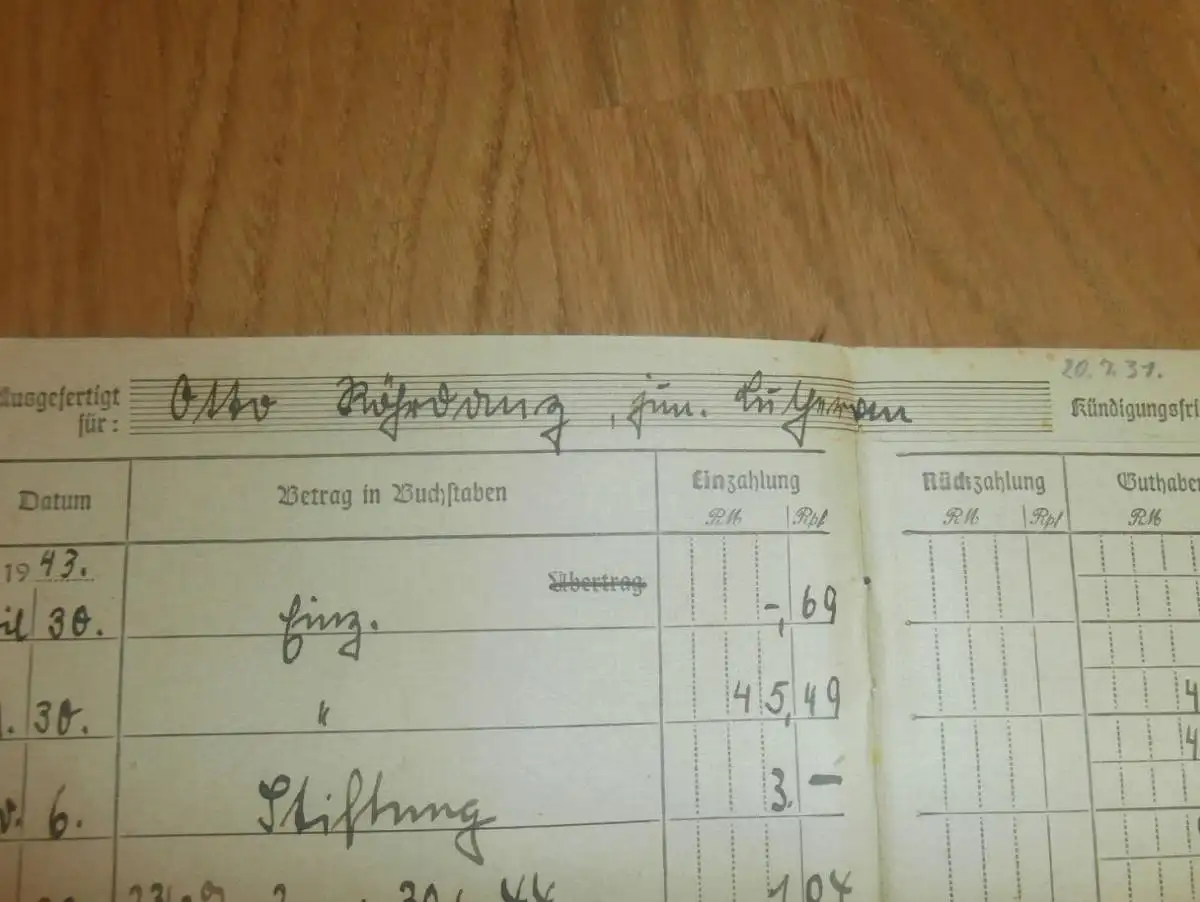 20.7.31.
Ausgefertigt für: Otto Röhrdanz, jun. Lutheran Kündigungsfri
Datum Betrag in Buchstaben Einzahlung Rückzahlung Guthaben
RM Rpf RM Rpf RM
1943. Übertrag
il 30. Einz. -,69
. 30. " 45,49 4
4
v. 6. Stiftung 3.-
30. 44 1 04